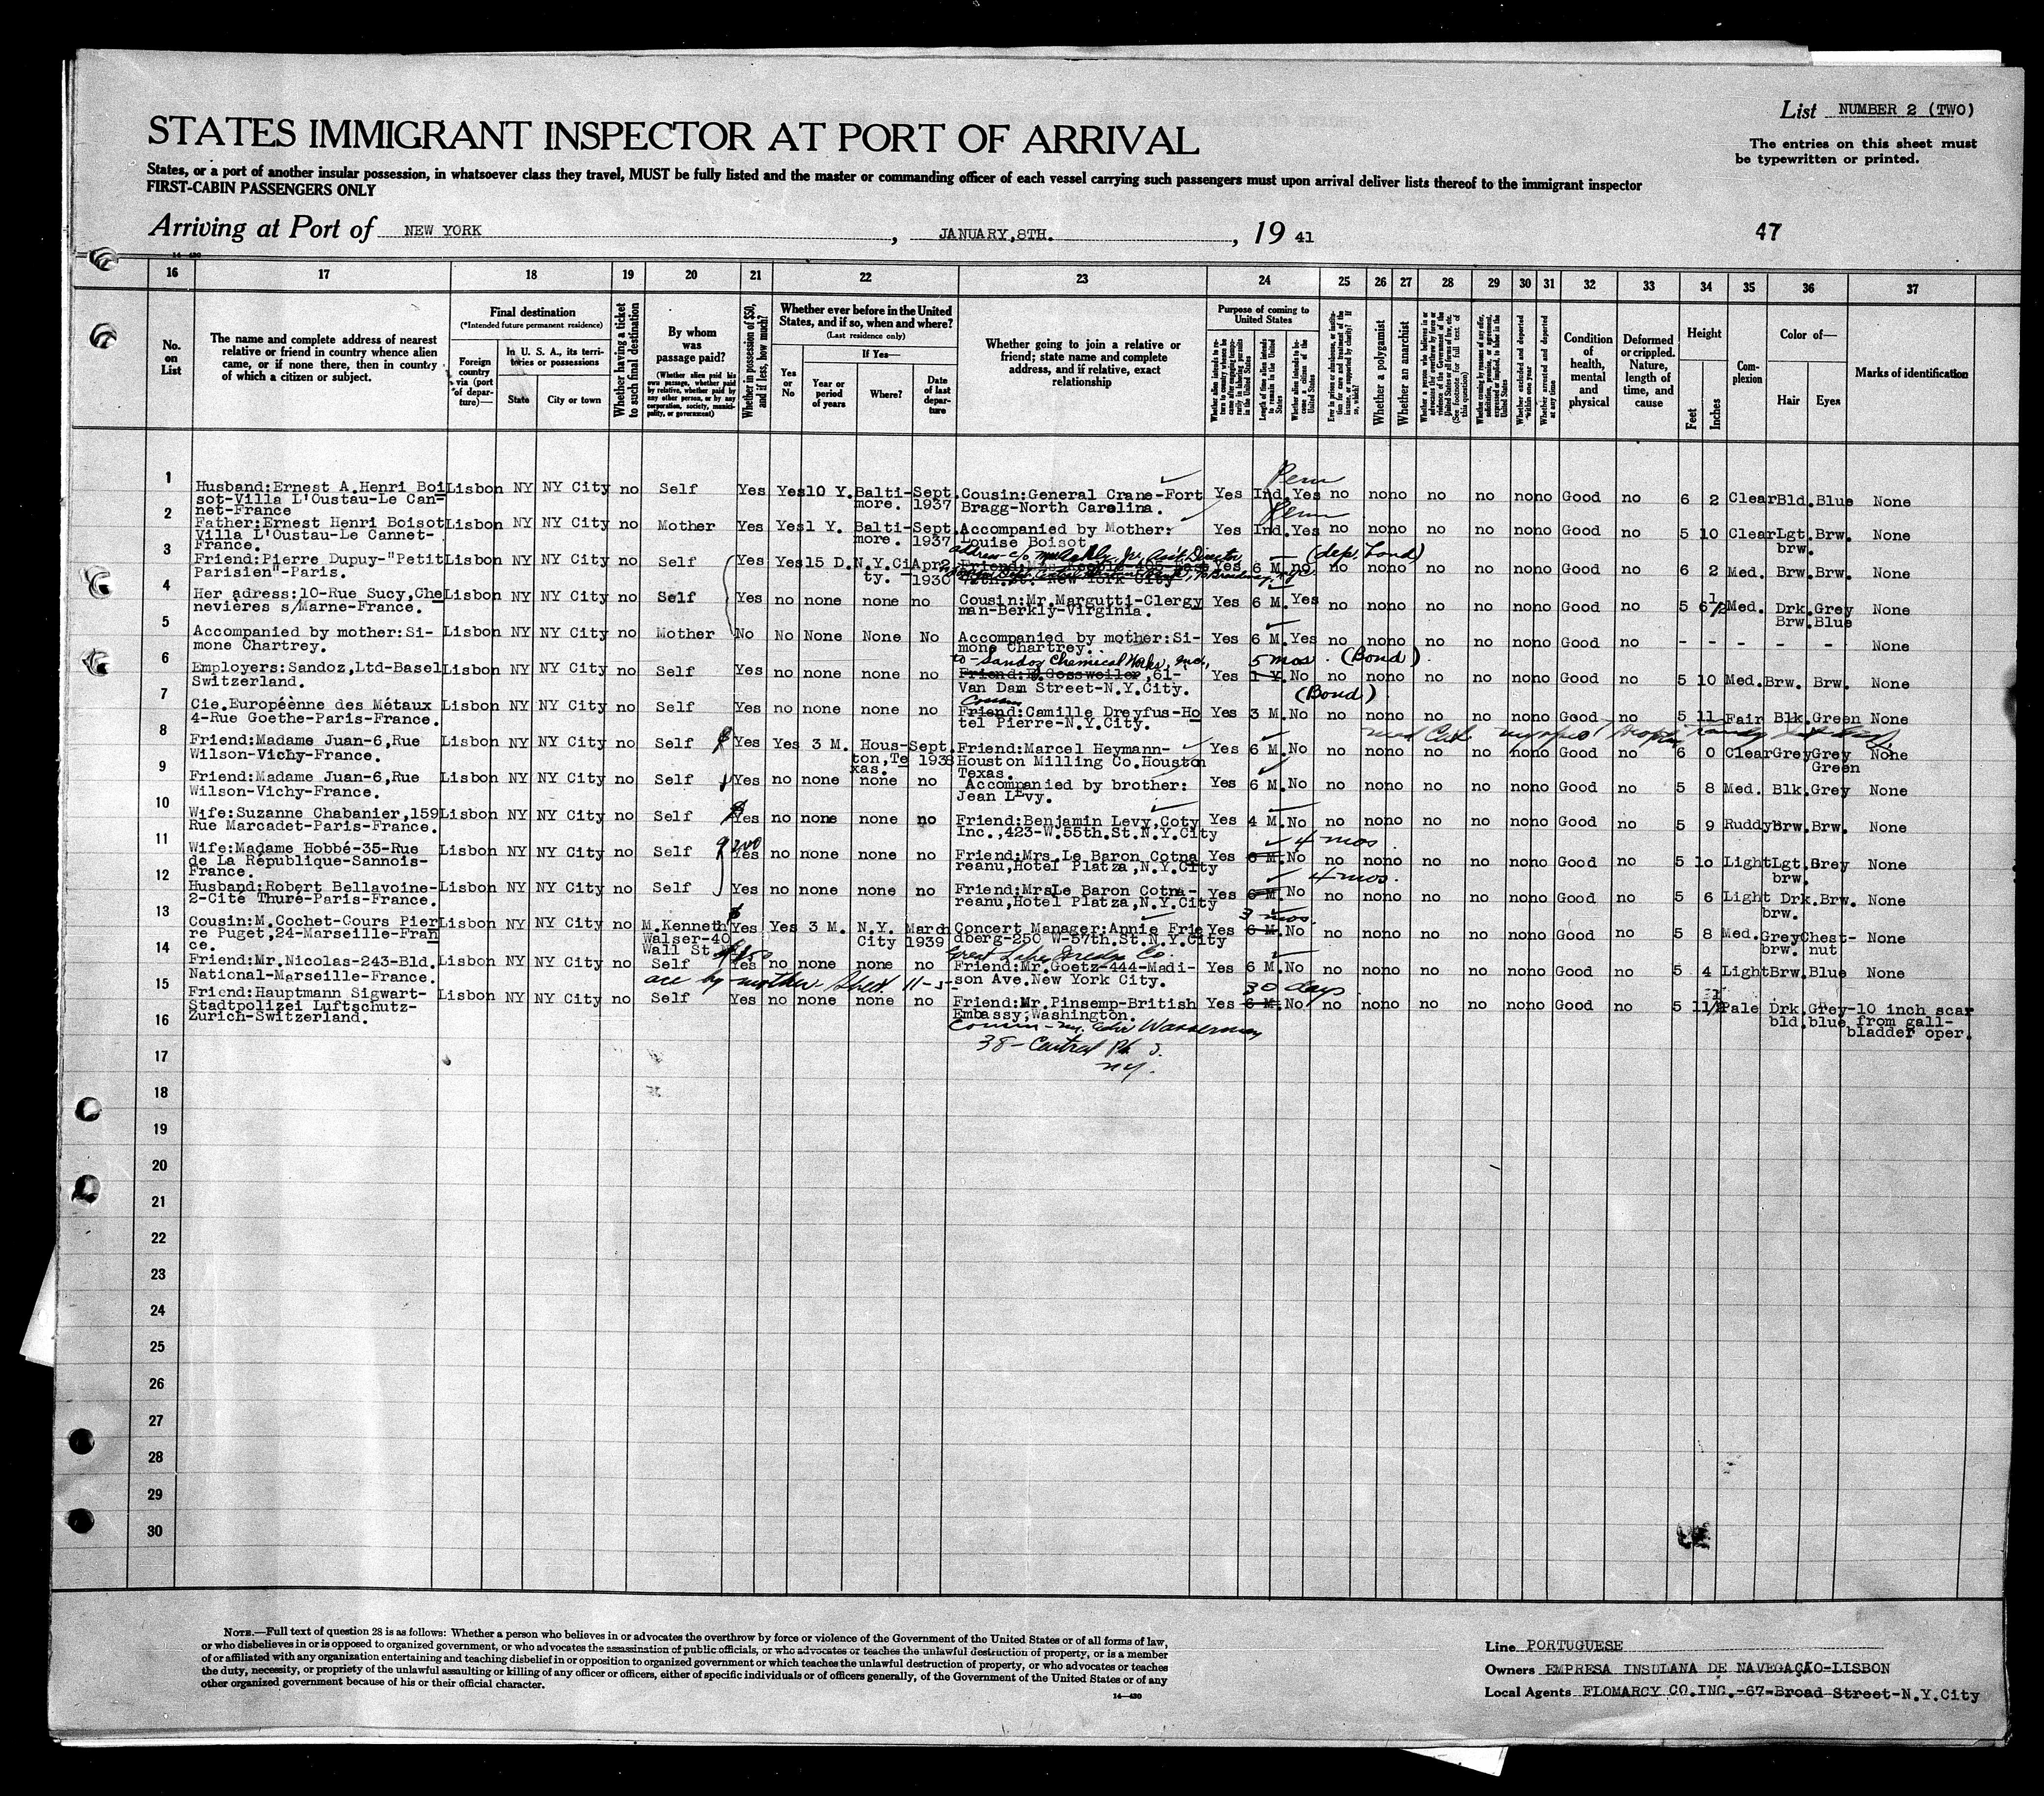 List NUMBER 2 (TWO)
STATES IMMIGRANT INSPECTOR AT PORT OF ARRIVAL
The entries on this sheet must
be typewritten or printed.
States, or a port of another insular possession, in whatsoever class they travel, MUST be fully listed and the master or commanding officer of each vessel carrying such passengers must upon arrival deliver lists thereof to the immigrant inspector
FIRST-CABIN PASSENGERS ONLY
Arriving at Port of NEW YORK , JANUARY,8TH. , 19 41
47
14-430
16 17 18 19 20 21 22 23 24 25 26 27 28 29 30 31 32 33 34 35 36 37
No. on List
The name and complete address of nearest relative or friend in country whence alien came, or if none there, then in country of which a citizen or subject.
Final destination
(*Intended future permanent residence)
Foreign country via (port of departure)—
In U. S. A., its territories or possessions
State
City or town
Whether having a ticket to such final destination
By whom was passage paid?
(Whether alien paid his own passage, whether paid by relative, whether paid by any other person, or by any corporation, society, municipality, or government)
Whether in possession of $50, and if less, how much?
Whether ever before in the United States, and if so, when and where?
(Last residence only)
Yes or No
If Yes—
Year or period of years
Where?
Date of last departure
Whether going to join a relative or friend; state name and complete address, and if relative, exact relationship
Purpose of coming to United States
Length of time alien intends to remain in the United States
Whether alien intends to become a citizen of the United States
Whether a polygamist
Whether an anarchist
Whether arrested and deported at any time
Condition of health, mental and physical
Deformed or crippled. Nature, length of time, and cause
Height
Feet
Inches
Complexion
Color of—
Hair
Eyes
Marks of identification
1 Husband:Ernest A.Henri Boi Lisbon NY NY City no Self Yes Yes 10 Y. Balti- Sept. Cousin:General Crane-Fort Yes Ind. Yes no no no no no no no Good no 6 2 Clear Bld. Blue None
Perm
sot-Villa L'Oustau-Le Can- more. 1937 Bragg-North Carolina.
net-France
2 Father:Ernest Henri Boisot Lisbon NY NY City no Mother Yes Yes 1 Y. Balti- Sept. Accompanied by Mother: Yes Ind. Yes no no no no no no no Good no 5 10 Clear Lgt. Brw. None
Perm
Villa L'Oustau-Le Cannet- more. 1937 Louise Boisot. brw.
France.
3 Friend:Pierre Dupuy-"Petit Lisbon NY NY City no Self Yes Yes 15 D. N.Y.Ci Apr2. Yes 6 M no no no no no no no no Good no 6 2 Med. Brw. Brw. None
Parisien"-Paris. ty. 1930 New York City
(dep. bond)
4 Her adress:10-Rue Sucy,Che Lisbon NY NY City no Self Yes no none none no Cousin:Mr.Margutti-Clergy Yes 6 M. Yes no no no no no no no Good no 5 6 1/2 Med. Drk. Grey None
nevières s/Marne-France. man-Berkly-Virginia. Brw. Blue
5 Accompanied by mother:Si- Lisbon NY NY City no Mother No No None None No Accompanied by mother:Si- Yes 6 M. Yes no no no no no no no Good no - - - - - None
mone Chartrey. mone Chartrey.
6 Employers:Sandoz,Ltd-Basel Lisbon NY NY City no Self Yes no none none no Friend:E.Gossweiler,61- Yes 1 Y. No no no no no no no no Good no 5 10 Med. Brw. Brw. None
to - Sandoz Chemical Works, Inc., 5 mos. (Bond)
Switzerland. Van Dam Street-N.Y.City.
7 Cie.Européènne des Métaux Lisbon NY NY City no Self Yes no none none no Friend:Camille Dreyfus-Ho Yes 3 M. No no no no no no no no Good no 5 11 Fair Blk. Green None
Cousin (Bond)
4-Rue Goethe-Paris-France. tel Pierre-N.Y.City.
8 Friend:Madame Juan-6,Rue Lisbon NY NY City no Self Yes Yes 3 M. Hous- Sept. Friend:Marcel Heymann- Yes 6 M. No no no no no no no no Good no 6 0 Clear Grey Grey None
Wilson-Vichy-France. ton,Te 1938 Houston Milling Co.Houston Green
xas. Texas.
9 Friend:Madame Juan-6,Rue Lisbon NY NY City no Self Yes no none none no Accompanied by brother: Yes 6 M. No no no no no no no no Good no 5 8 Med. Blk. Grey None
Wilson-Vichy-France. Jean Levy.
10 Wife:Suzanne Chabanier,159 Lisbon NY NY City no Self Yes no none none no Friend:Benjamin Levy,Coty Yes 4 M. No no no no no no no no Good no 5 9 Ruddy Brw. Brw. None
Rue Marcadet-Paris-France. Inc.,423-W.55th.St.N.Y.City
11 Wife:Madame Hobbé-35-Rue Lisbon NY NY City no Self Yes no none none no Friend:Mrs.Le Baron Cotna Yes 6 M. No no no no no no no no Good no 5 10 Light Lgt. Grey None
200 4 mos.
de La République-Sannois- reanu,Hotel Platza,N.Y.City brw.
France.
12 Husband:Robert Bellavoine- Lisbon NY NY City no Self Yes no none none no Friend:MrsLe Baron Cotna- Yes 6 M. No no no no no no no no Good no 5 6 Light Drk. Brw. None
4 mos.
2-Cité Thuré-Paris-France. reanu,Hotel Platza,N.Y.City brw.
13 Cousin:M.Cochet-Cours Pier Lisbon NY NY City no M.Kenneth Yes Yes 3 M. N.Y. March Concert Manager:Annie Frie Yes 6 M. No no no no no no no no Good no 5 8 Med. Grey Chest- None
3 mos.
re Puget,24-Marseille-Fran Walser-40 City 1939 dberg-250 W-57th.St.N.Y.City brw. nut
ce. Wall St.
14 Friend:Mr.Nicolas-243-Bld. Lisbon NY NY City no Self Yes no none none no Friend:Mr.Goetz-444-Madi- Yes 6 M. No no no no no no no no Good no 5 4 Light Brw. Blue None
National-Marseille-France. son Ave.New York City.
15 Friend:Hauptmann Sigwart- Lisbon NY NY City no Self Yes no none none no Friend:Mr.Pinsemp-British Yes 6 M. No no no no no no no no Good no 5 11 1/2 Pale Drk. Grey- 10 inch scar
30 days
Stadtpolizei Luftschutz- Embassy;Washington. bld. blue from gall-
Zurich-Switzerland. bladder oper.
16
Wasserman
38 - Central Pk S.
NY.
17
18
19
20
21
22
23
24
25
26
27
28
29
30
NOTE.—Full text of question 28 is as follows: Whether a person who believes in or advocates the overthrow by force or violence of the Government of the United States or of all forms of law,
or who disbelieves in or is opposed to organized government, or who advocates the assassination of public officials, or who advocates or teaches the unlawful destruction of property, or is a member
of or affiliated with any organization entertaining and teaching disbelief in or opposition to organized government or which teaches the unlawful destruction of property, or who advocates or teaches
the duty, necessity, or propriety of the unlawful assaulting or killing of any officer or officers, either of specific individuals or of officers generally, of the Government of the United States or of any
other organized government because of his or their official character.
14—430
Line PORTUGUESE
Owners EMPRESA INSULANA DE NAVEGAÇÃO-LISBON
Local Agents FLOMARCY CO.INC.-67-Broad Street-N.Y.City